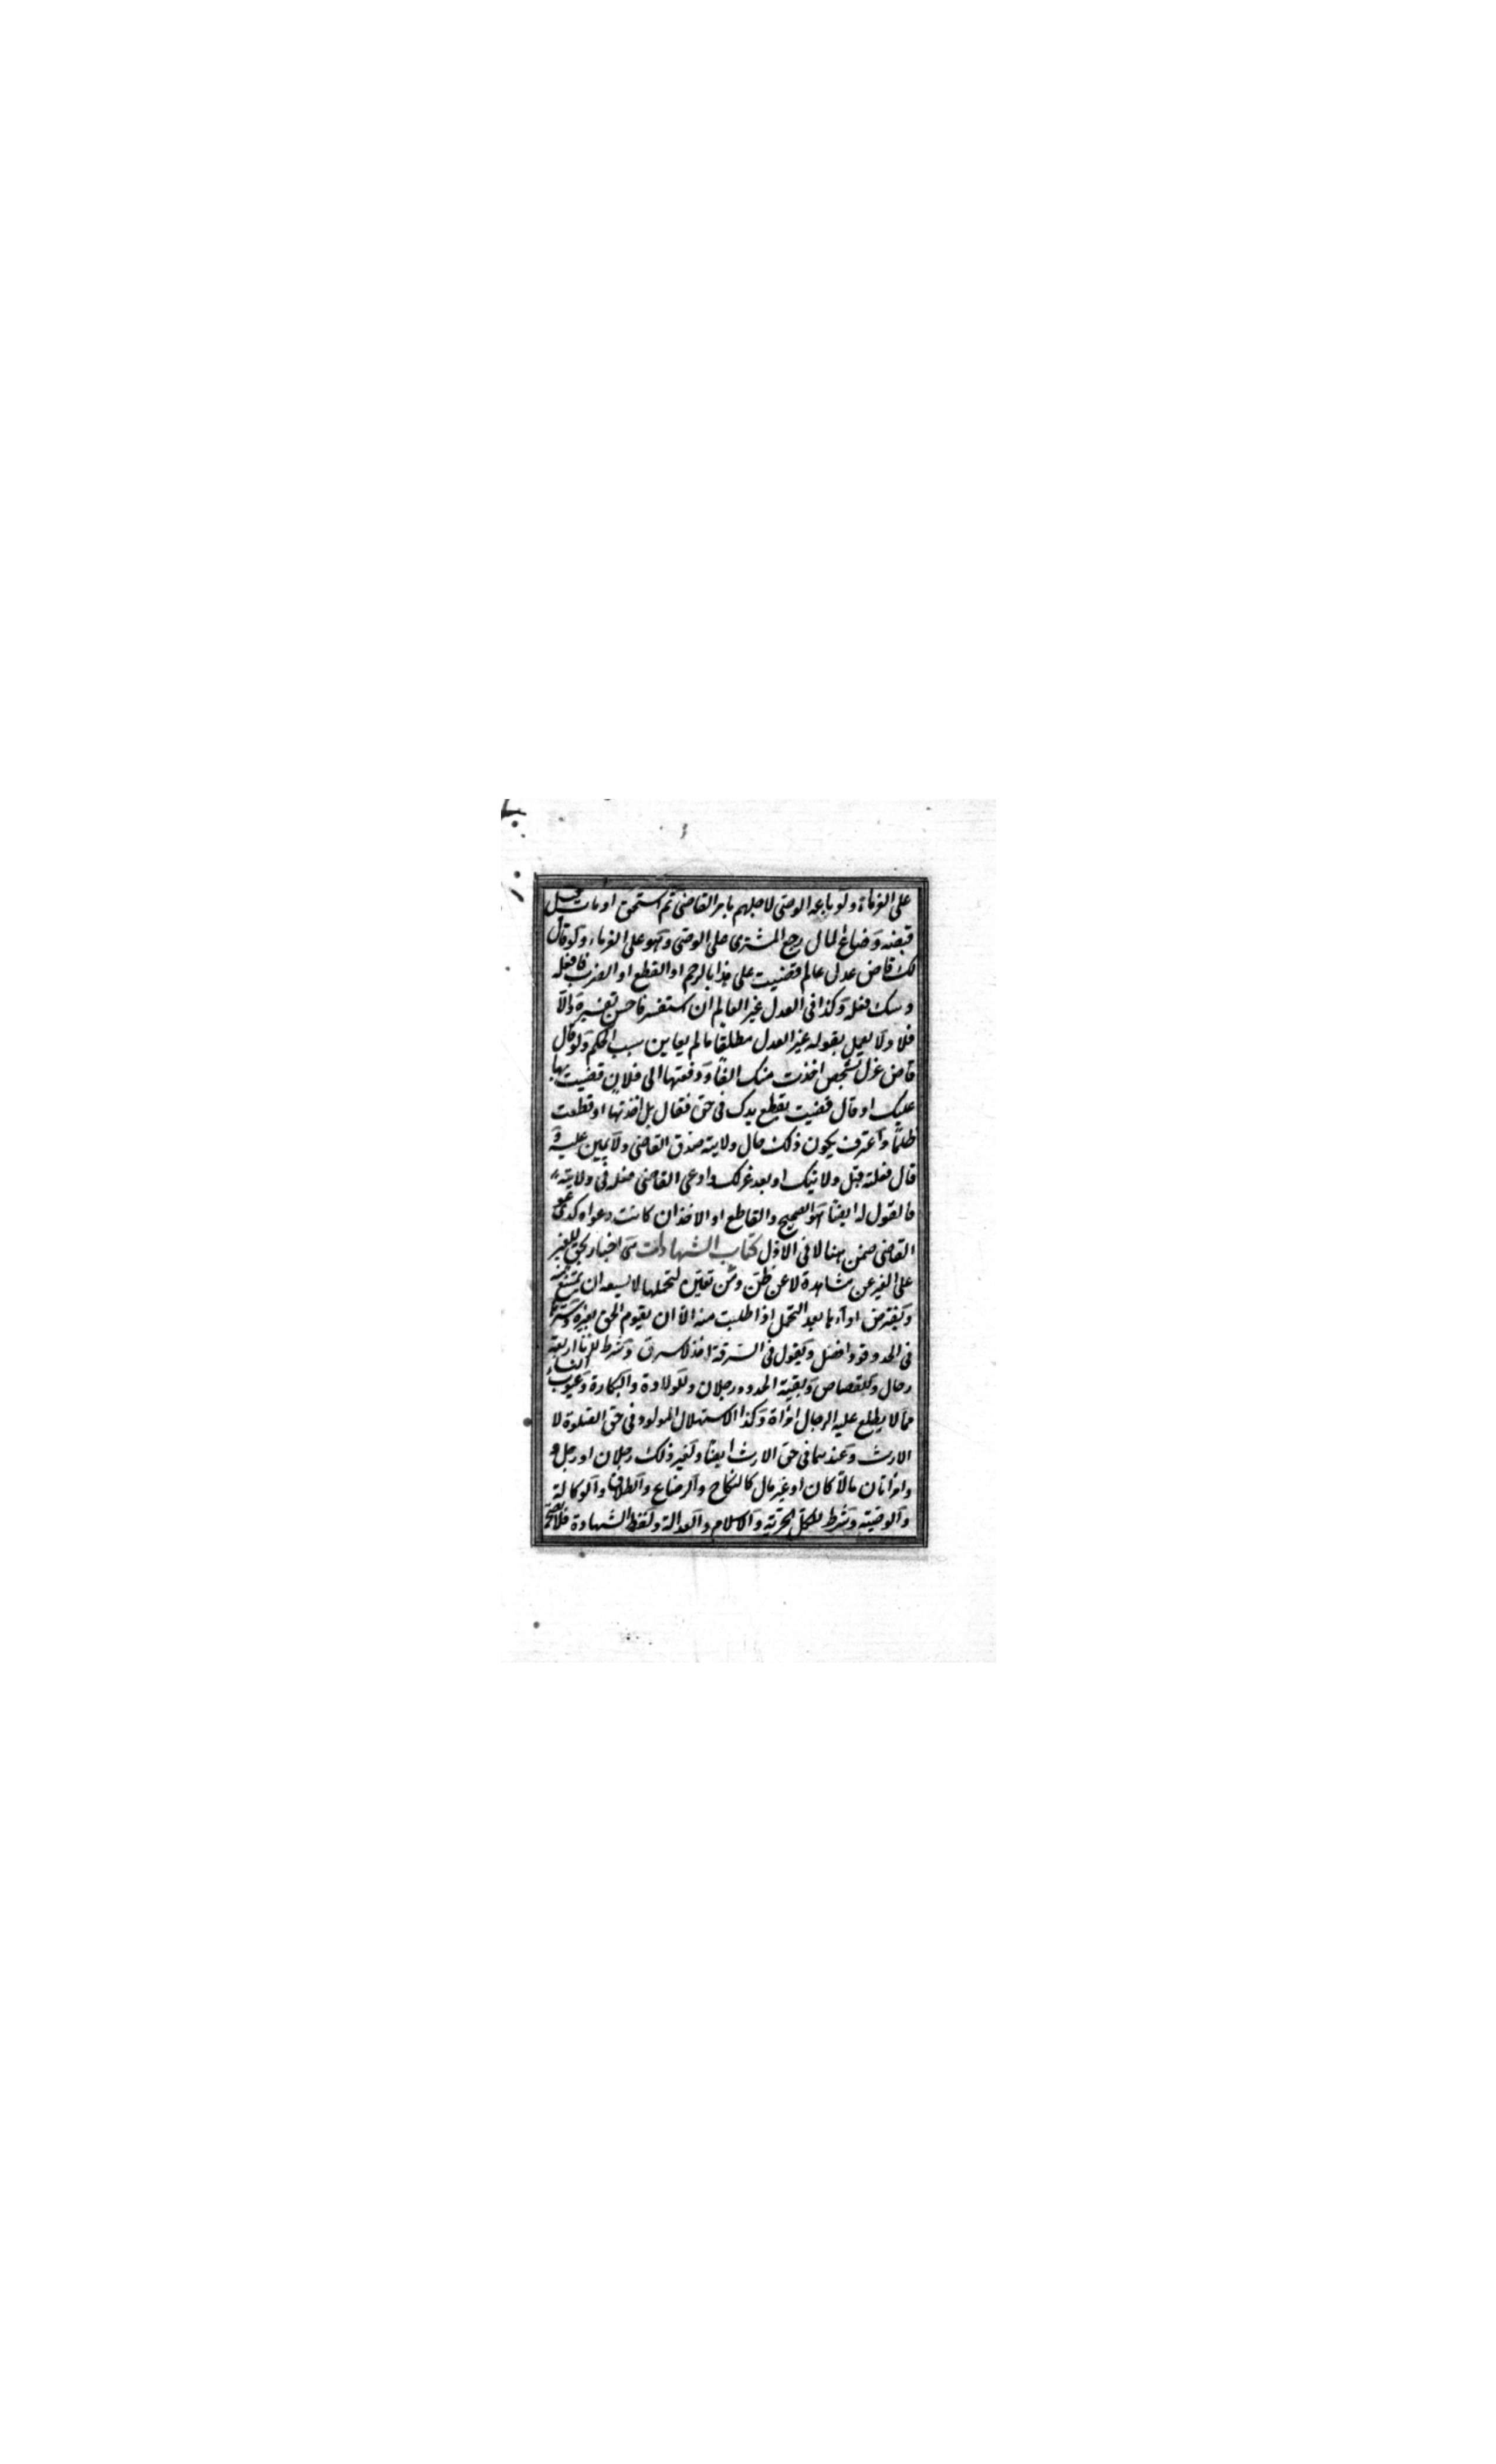 على الغرماء ولو باعه الوصى لاجلهم بامر القاضى ثم استحق او مات قبل
قبضه وضاع المال رجع المشترى على الوصى وهو على الغرماء ولو قال
لك قاض عدل عالم قضيت على هذا بالرجم او القطع او الضرب فافعله
وسعك فعله وكذا فى العدل غير العالم ان استفسر فاحسن تفسيره والا
فلا ولا يعمل بقوله غير العدل مطلقا ما لم يعاين سبب الحكم ولو قال
قاض عزل لشخص اخذت منك الفا ودفعتها الى فلان قضيت بها
عليك او قال قضيت بقطع يدك فى حق فقال بل اخذتها او قطعت
ظلما واعترف بكون ذلك حال ولايته صدق القاضى ولا يمين عليه ولو
قال فعلته قبل ولايتك او بعد عزلك وادعى القاضى فعله فى ولايته
فالقول له ايضا هو الصحيح والقاطع او الاخذ ان كانت دعواه كدعوى
القاضى ضمن هنا لا فى الاول كتاب الشهادات هى اخبار بحق للغير
على الغير عن مشاهدة لا عن ظن ومن تعين لتحملها لا يسعه ان يمتنع منه
ويفترض اداؤها بعد التحمل اذا طلبت منه الا ان يقوم الحق بغيره وسترها
فى الحدود افضل ويقول فى السرقة اخذ لا سرق وشرط للزنا اربعة
رجال وللقصاص وبقية الحدود رجلان وللولادة والبكارة وعيوب النساء
مما لا يطلع عليه الرجال امراة وكذا الاستهلال المولود فى حق الصلوة لا
الارث وعندهما فى حق الارث ايضا ولغير ذلك رجلان او رجل و
وامراتان مالا كان او غير مال كالنكاح والرضاع والطلاق والوكالة
والوصية وشرط للكل الحرية والاسلام والعدالة ولفظ الشهادة فلا تصح